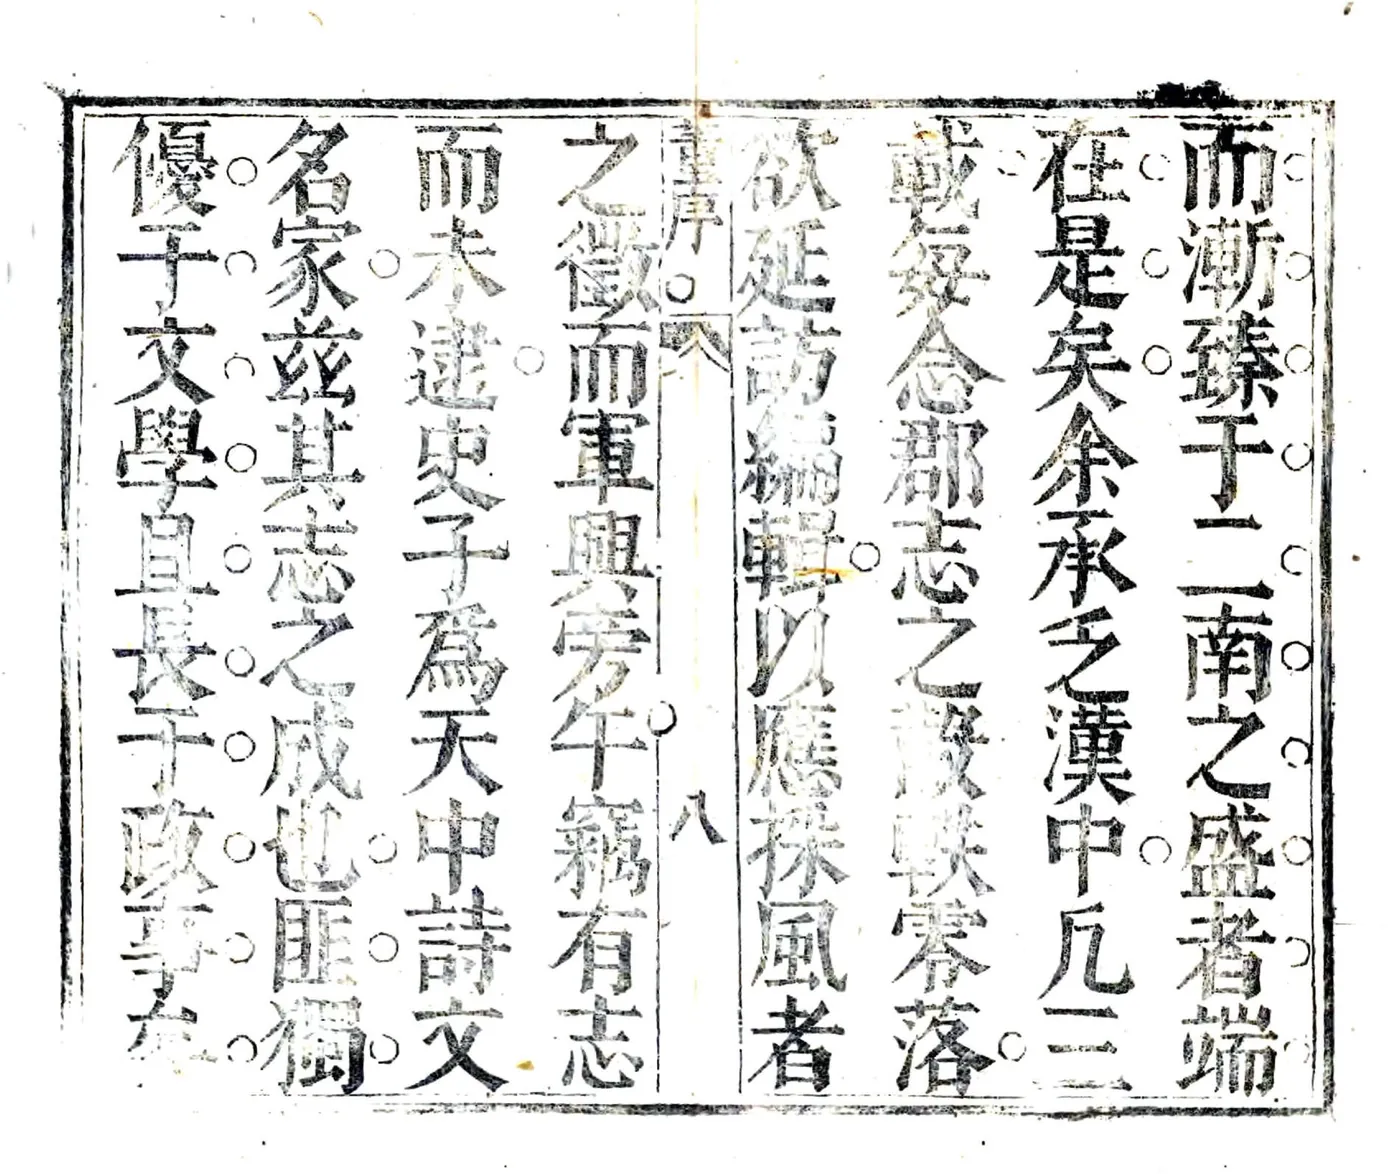 而漸臻于二南之盛者端
在是矣余承乏漢中凡三
載每念郡志之殘軼零落
欲延訪編輯以應採風者
序
八
之徵而軍興旁午竊有志
而未逮史子為天中詩文
名家茲其志之成也匪獨
優于文學且長于政事矣